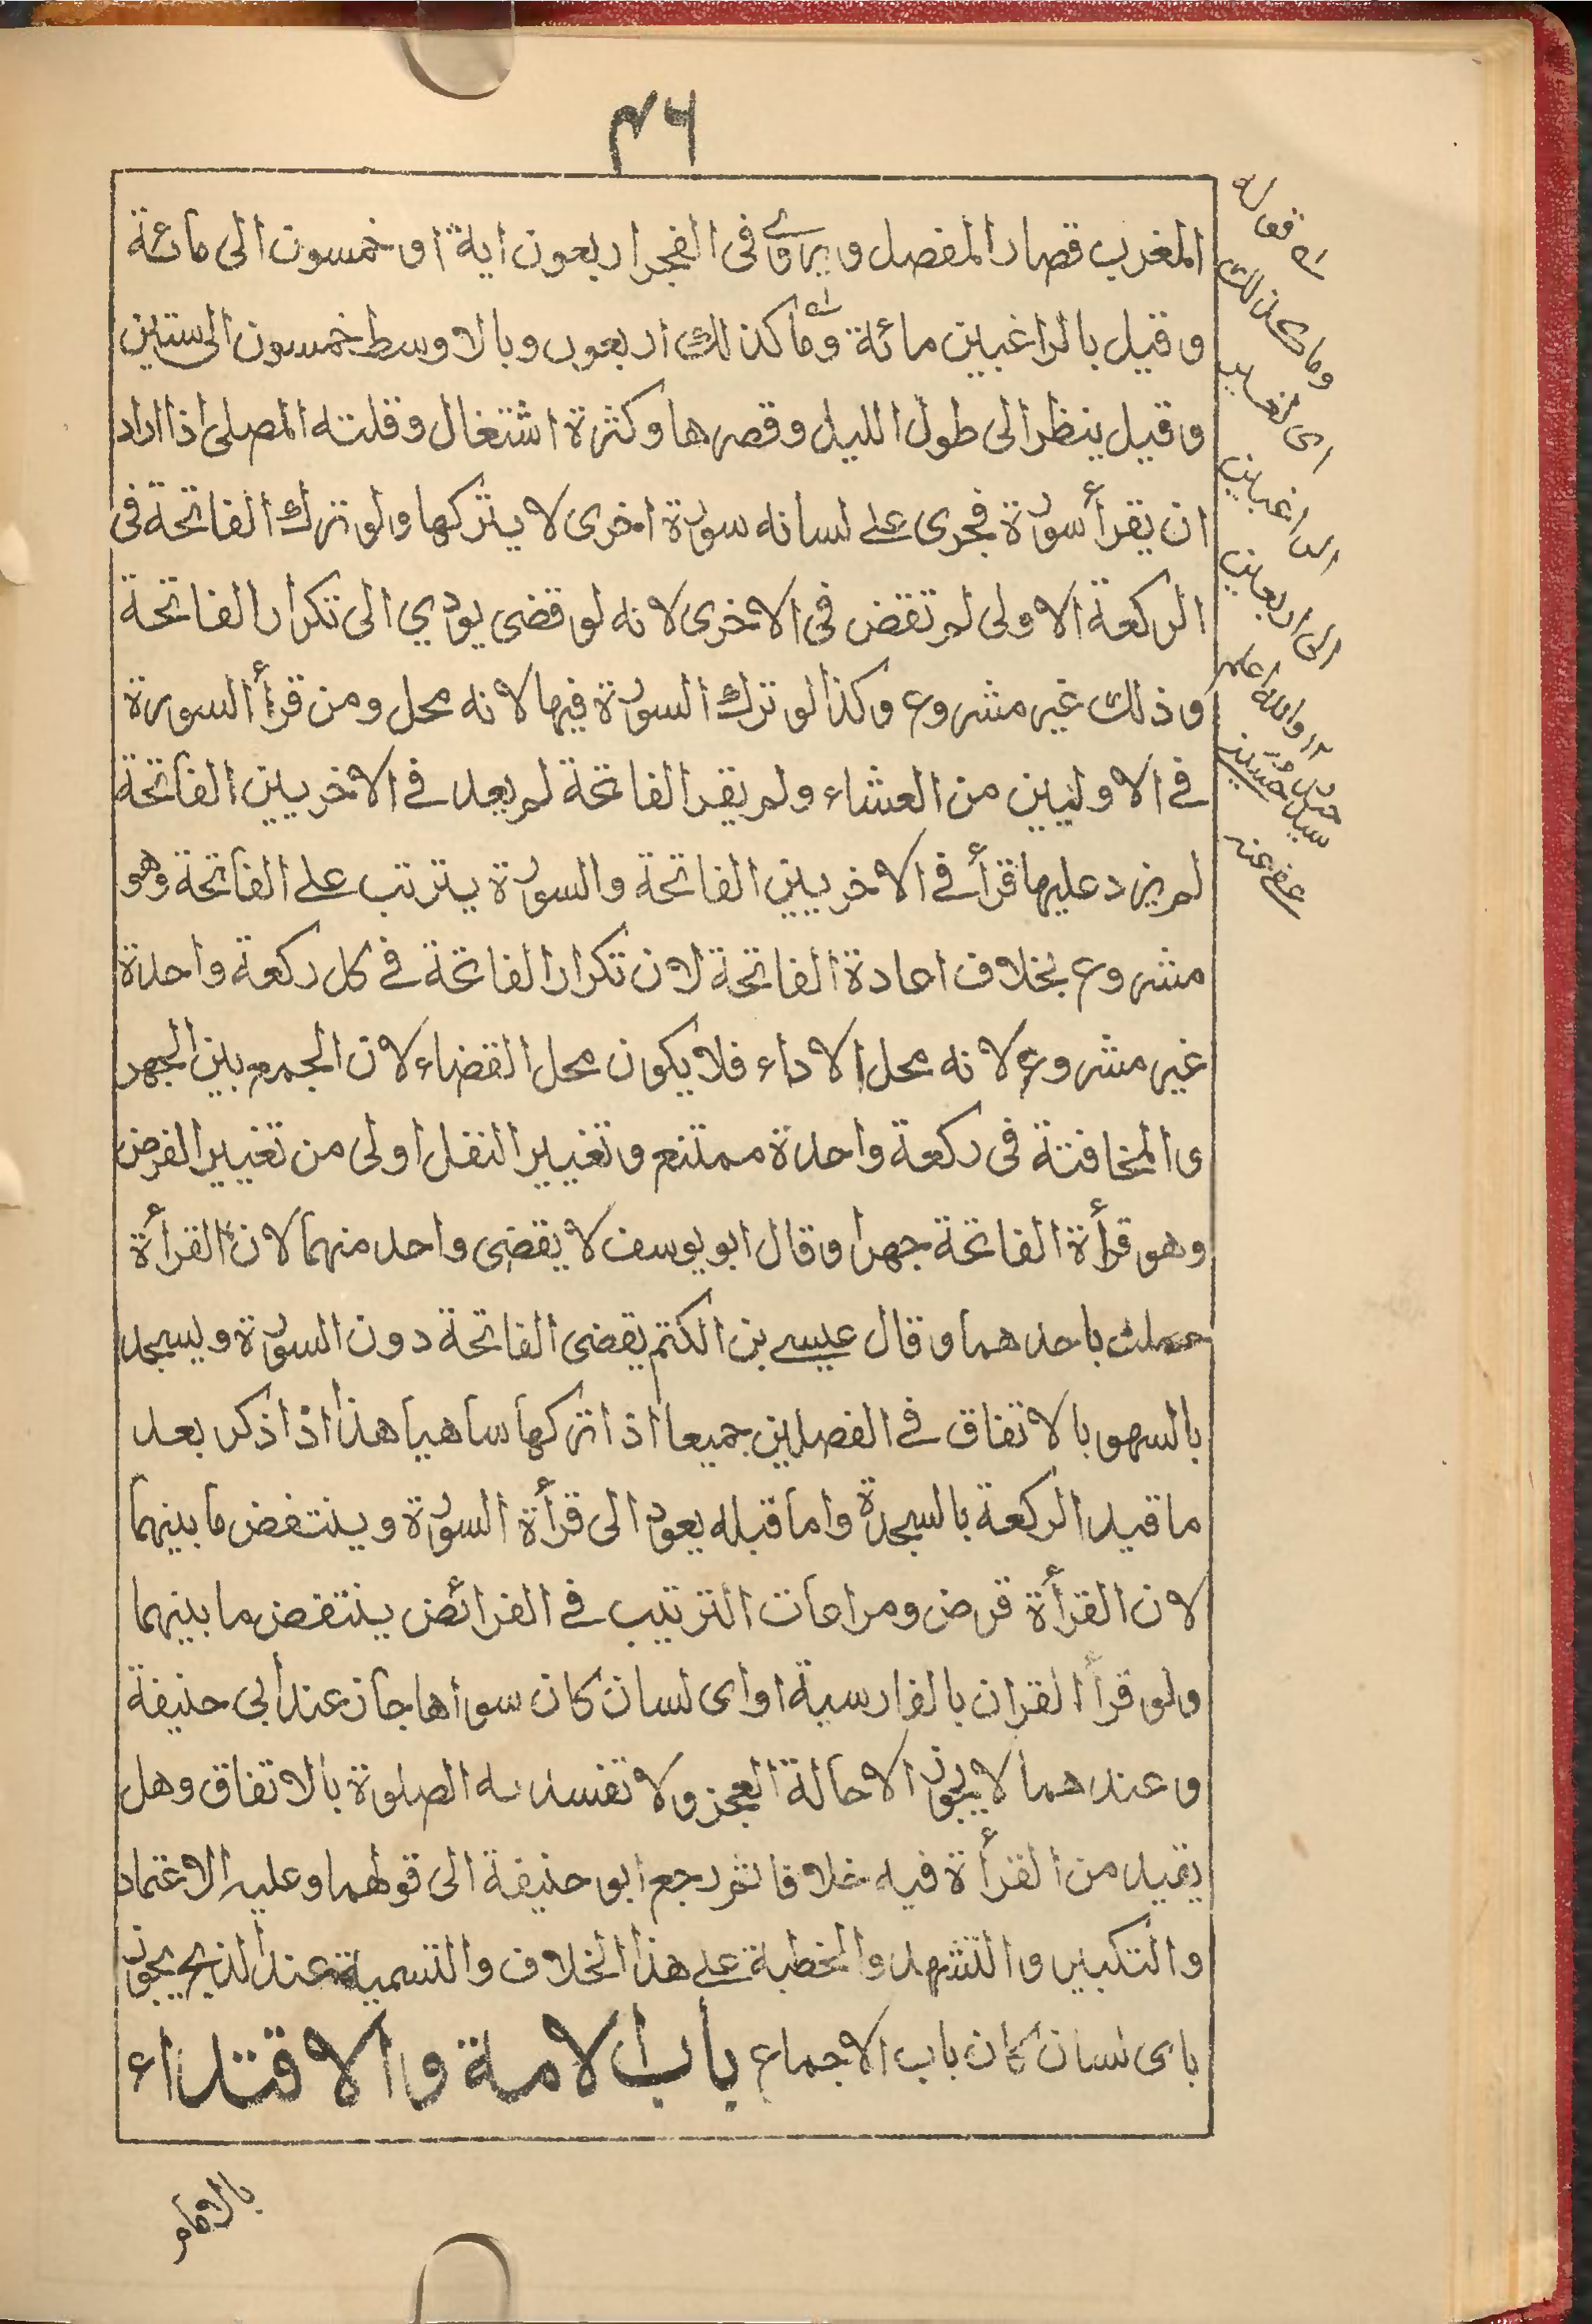 ۴۶
المغرب قصار المفصل ويروى فى الفجر اربعون اية او خمسون الى مائة
وقيل بالراغبين مائة وما كذلك اربعون وبالاوسط خمسون الى ستين
وقيل ينظر الى طول الليل وقصرها وكثرة اشتغال وقلته المصلى اذا اراد
ان يقرأ سورة فجرى على لسانه سورة اخرى لا يتركها ولو ترك الفاتحة فى
الركعة الاولى لم تقض فى الاخرى لانه لو قضى يودي الى تكرار الفاتحة
وذلك غير مشروع وكذا لو ترك السورة فيها لانه محل ومن قرأ السورة
فى الاوليين من العشاء ولم يقرا الفاتحة لم يعد فى الاخريين الفاتحة
لم يزد عليها قرأ فى الاخريين الفاتحة والسورة يترتب على الفاتحة وهو
مشروع بخلاف اعادة الفاتحة لان تكرار الفاتحة فى كل ركعة واحدة
غير مشروع لانه محل الاداء فلا يكون محل القضاء لان الجمع بين الجهر
و المخافتة فى ركعة واحدة ممتنع وتغيير النفل اولى من تغيير الفرض
وهو قرأة الفاتحة جهرا وقال ابو يوسف لا يقضى واحد منهما لان القرأة
باحدهما وقال عيسى بن يقضى الفاتحة دون السورة ويسجد
بالسهو بالاتفاق فى الفصلين جميعا اذا تركها ساهيا هذا اذا ذكر بعد
ما قيد الركعة بالسجدة واما قبله يعود الى قرأة السورة وينتغض ما بينهما
لان القرأة فرض ومراعات الترتيب فى الفرائض ينتقض ما بينهما
ولو قرأ القران بالفارسية او اى لسان كان سواها جاز عند ابى حنيفة
وعندهما لا يجوز الا حالة العجز ولا تفسد به الصلوة بالاتفاق وهل
يقيد من القرأة فيه خلافا ثم رجع ابو حنيفة الى قولهما وعليه الاعتماد
والتكبير والتشهد والخطبة على هذا الخلاف والتسمية عند الذبح يجوز
باى لسان كان باب الاجماع باب الامة والاقتداء
قوله
وما كذلك
اى لغير
الراغبين
الى اربعين
۱۲ والله اعلم
سيد حسين
عفى عنه
بالامام